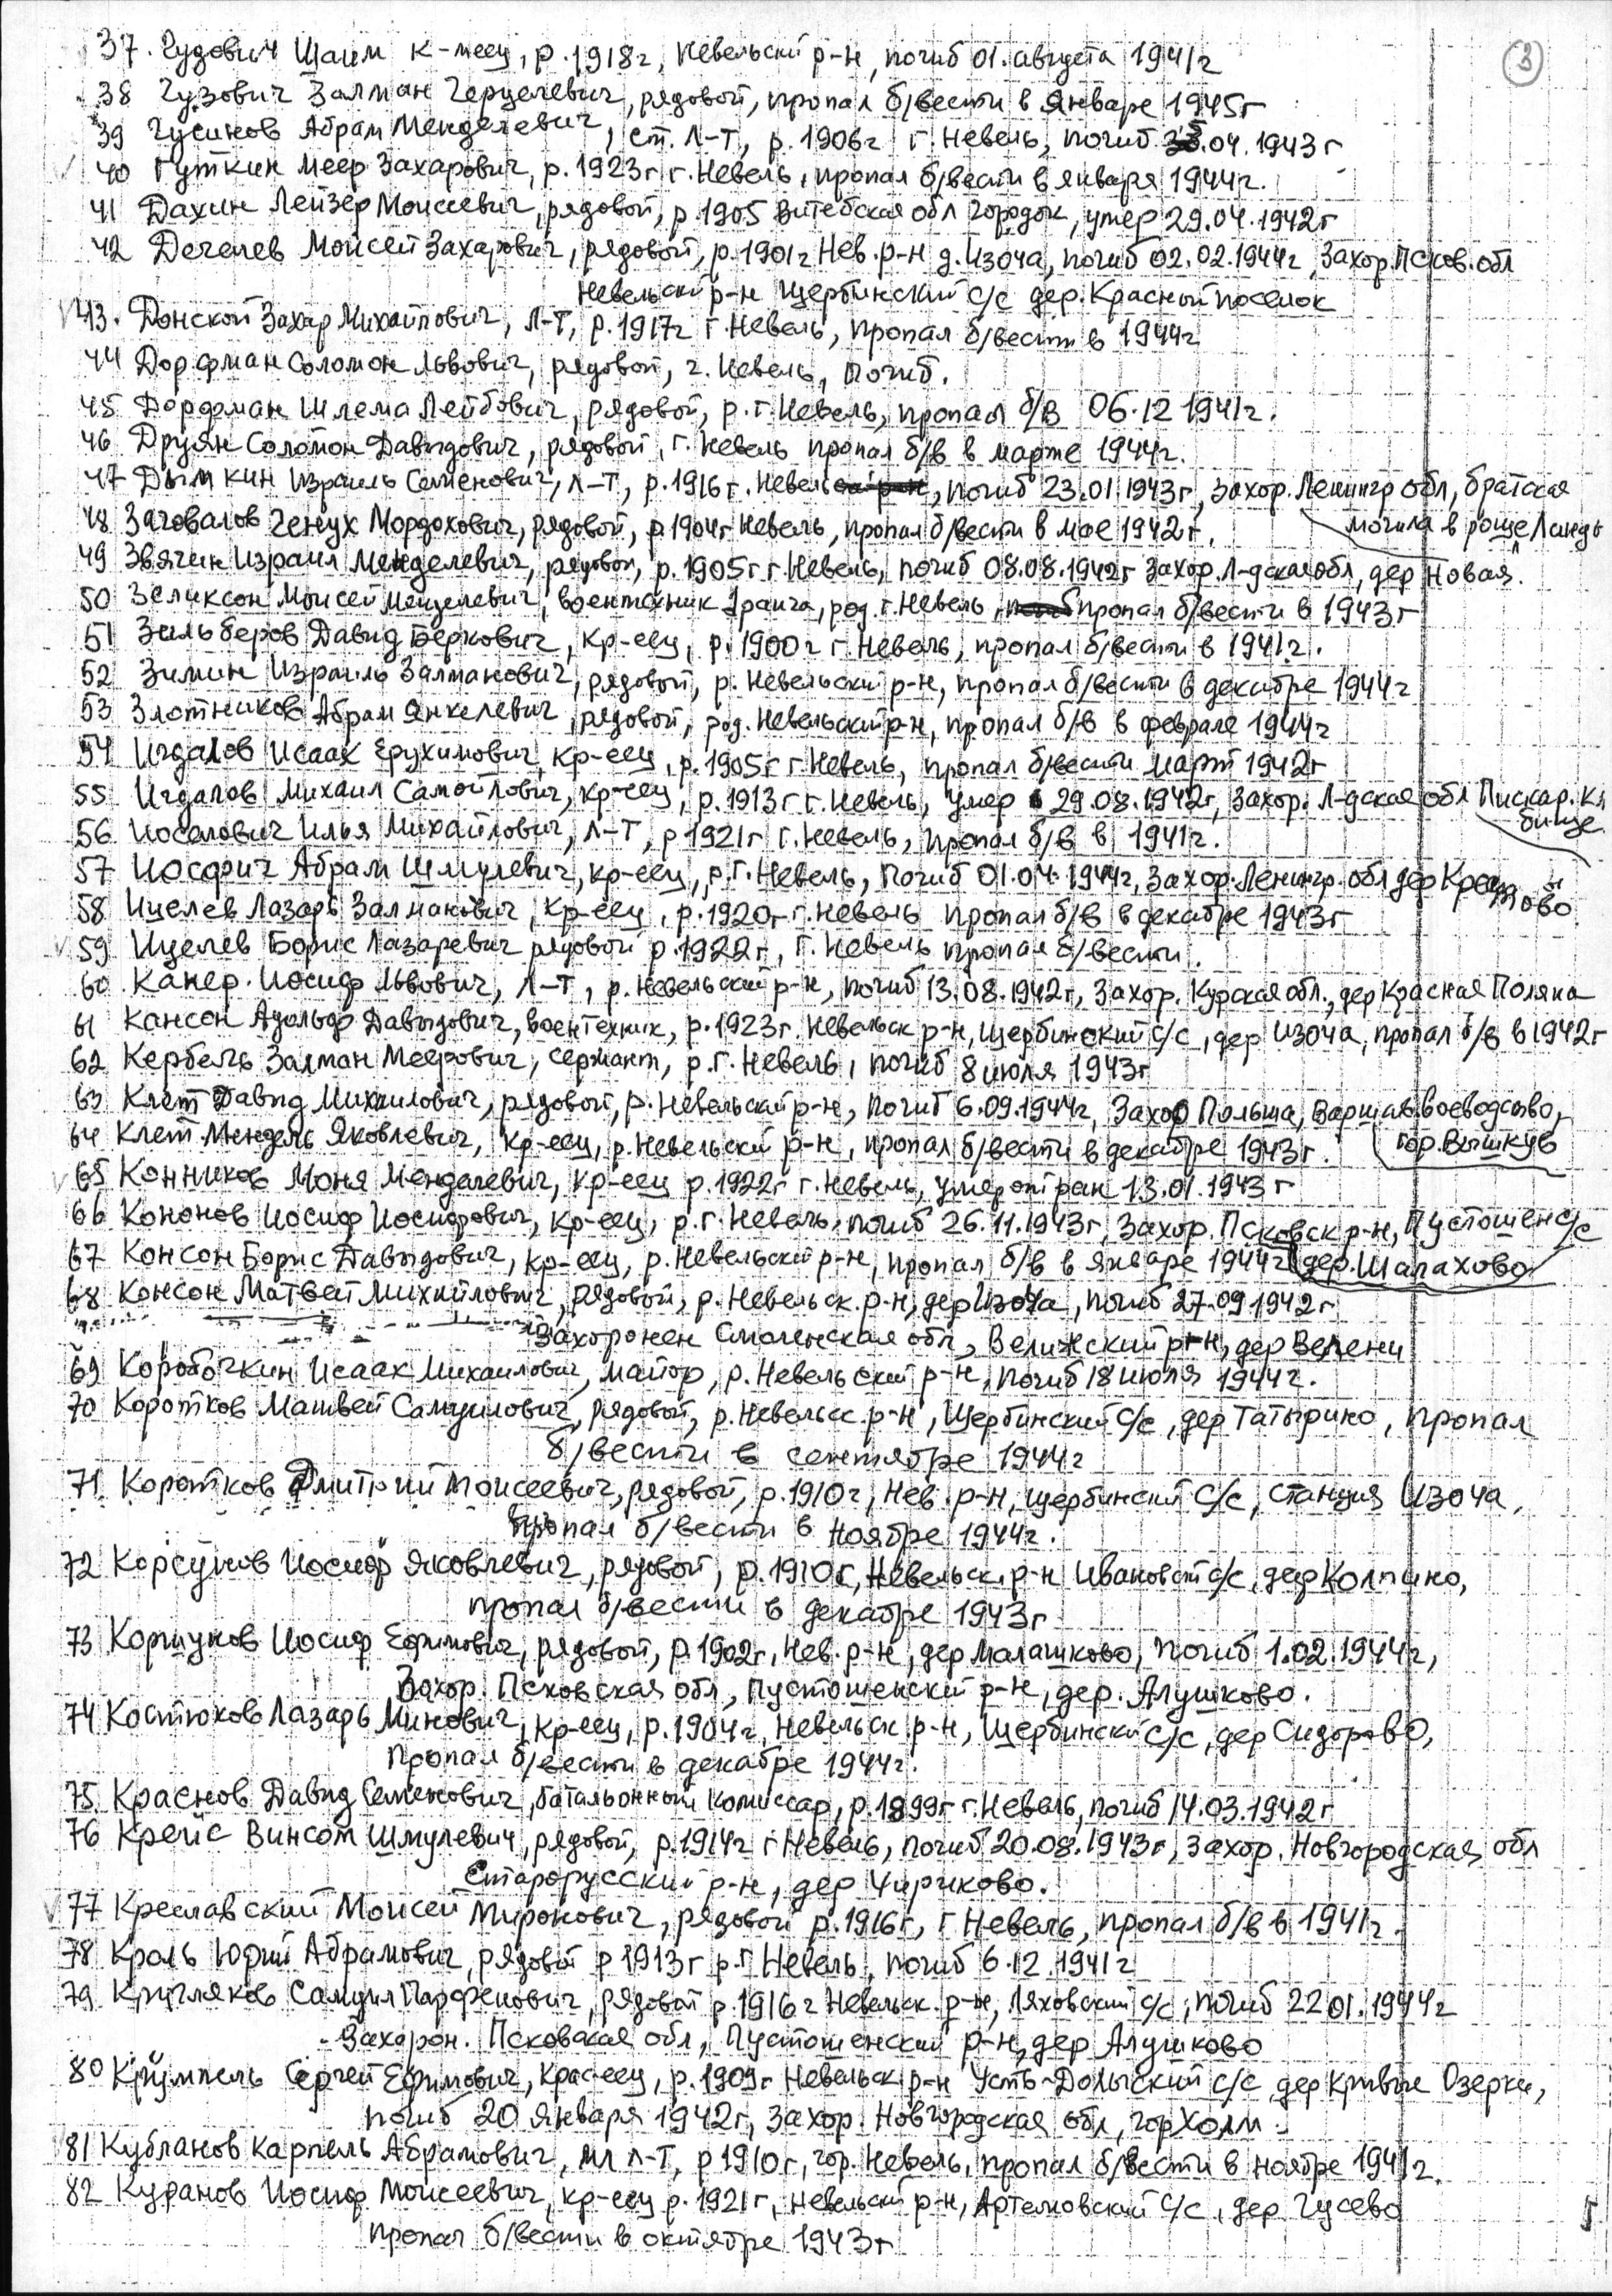 3
37. Гудович Шаим к-меец, р. 1918г, Невельский р-н, погиб 01. августа 1941г
38 Гузович Залман Герцелевич, рядовой, пропал б/вести в январе 1945г
39 Гусинов Абрам Менделевич, ст. Л-Т, р. 1906г г. Невель, погиб .04.1943г
40 Гуткин Меер Захарович, р. 1923г г. Невель, пропал б/вести в января 1944г.
41 Дахин Лейзер Моисеевич, рядовой, р. 1905 Витебская обл Городок, умер 29.04.1942г
42 Дегелев Моисей Захарович, рядовой, р. 1901г Нев. р-н д. Изоча, погиб 02.02.1944г, Захор. Псков. обл
Невельский р-н Щербинский с/с дер. Красный поселок
43. Донской Захар Михайлович, Л-Т, р. 1917г г. Невель, пропал б/вести в 1944г
44 Дорфман Соломон Львович, рядовой, г. Невель, погиб.
45 Дорфман Шлема Лейбович, рядовой, р. г. Невель, пропал б/в 06.12 1941г.
46 Друян Соломон Давыдович, рядовой, г. Невель пропал б/в в марте 1944г.
47 Дымкин Израиль Семенович, Л-Т, р. 1916г. Невель, погиб 23.01.1943г, захор. Ленингр обл, братская
могила в роще Ландь
48 Заговалов Генух Мордохович, рядовой, р. 1904г Невель, пропал б/вести в мае 1942г.
49 Звягин Израил Менделевич, рядовой, р. 1905г г. Невель, погиб 08.08.1942г Захор. Л-дская обл, дер Новая.
50 Зеликсон Моисей Менделевич, воентехник 1 ранга, род. г. Невель, пропал б/вести в 1943г
51 Зильберов Давид Беркович, кр-еец, р. 1900г г. Невель, пропал б/вести в 1941г.
52 Зимин Израиль Залманович, рядовой, р. Невельский р-н, пропал б/вести в декабре 1944г
53 Злотников Абрам Янкелевич, рядовой, род. Невельский р-н, пропал б/в в феврале 1944г
54 Игдалов Исаак Ерухимович, кр-еец, р. 1905г г. Невель, пропал б/вести март 1942г
55 Игдалов Михаил Самойлович, кр-еец, р. 1913г г. Невель, умер 29.08.1942г, Захор. Л-дская обл Пискар. Кл
бище
56 Иоселович Илья Михайлович, Л-Т, р 1921г г. Невель, пропал б/в в 1941г.
57 Иосфич Абрам Шмулевич, кр-еец, р. г. Невель, погиб 01.04.1944г, Захор. Ленингр. обл дер
58 Ицелев Лазарь Залманович, кр-еец, р. 1920г г. Невель пропал б/в в декабре 1943г
59 Ицелев Борис Лазаревич рядовой р. 1922г, г. Невель пропал б/вести.
60 Канер Иосиф Львович, Л-Т, р. Невельский р-н, погиб 13.08.1942г, Захор. Курская обл., дер Красная Поляна
61 Кансон Адольф Давыдович, воентехник, р. 1923г. Невельск р-н, Щербинский с/с, дер Изоча, пропал б/в в 1942г
62 Кербель Залман Меерович, сержант, р. г. Невель, погиб 8 июля 1943г
63 Клет Давид Михаилович, рядовой, р. Невельский р-н, погиб 6.09.1944г, Захор Польша, Варшав. воеводство,
гор. Вышкув
64 Клет Мендель Яковлевич, кр-еец, р. Невельский р-н, пропал б/вести в декабре 1943г.
65 Конников Моня Менделевич, кр-еец р. 1922г г. Невель, умер от ран 13.01.1943г
66 Кононов Иосиф Иосифович, кр-еец, р. г. Невель, погиб 26.11.1943г, Захор. Псковск р-н, Пустошен с/с
дер. Шалахово
67 Консон Борис Давыдович, кр-еец, р. Невельский р-н, пропал б/в в январе 1944г
68 Консон Матвей Михайлович, рядовой, р. Невельск. р-н, дер Изоча, погиб 27.09 1942г
Захоронен Смоленская обл, Велижский р-н, дер Велени
69 Коробочкин Исаак Михаилович, майор, р. Невельский р-н, погиб 18 июля 1944г.
70 Коротков Матвей Самуилович, рядовой, р. Невельск. р-н, Щербинский с/с, дер Татырино, пропал
б/вести в сентябре 1944г
71 Коротков Дмитрий Моисеевич, рядовой, р. 1910г, Нев. р-н, Щербинский с/с, станция Изоча,
пропал б/вести в ноябре 1944г.
72 Корсунов Иосиф Яковлевич, рядовой, р. 1910г, Невельск. р-н Ивановск с/с, дер Колпино,
пропал б/вести в декабре 1943г
73 Коршунов Иосиф Ефимович, рядовой, р. 1902г, Нев. р-н, дер Малашково, погиб 1.02.1944г,
Захор. Псковская обл, Пустошенский р-н, дер. Алушково.
74 Костюков Лазарь Минович, кр-еец, р. 1904г, Невельск р-н, Щербинский с/с, дер Сидорово,
Пропал б/вести в декабре 1944г.
75 Краснов Давид Семенович, батальонный комиссар, р. 1899г г. Невель, погиб 14.03.1942г
76 Крейс Винсом Шмулевич, рядовой, р. 1914г г Невель, погиб 20.08.1943г, Захор. Новгородская обл
Старорусский р-н, дер Чириково.
77 Креславский Моисей Миронович, рядовой р. 1916г, г Невель, пропал б/в в 1941г.
78 Кроль Юрий Абрамович, рядовой р 1913г р. г Невель, погиб 6.12.1941г
79 Кругляков Самуил Парфенович, рядовой р. 1916г Невельск. р-н, Ляховский с/с, погиб 22 01.1944г
Захорон. Псковская обл, Пустошенский р-н, дер Алушково
80 Крумпель Сергей Ефимович, Крас-еец, р. 1909г Невельск р-н Усть-Долысский с/с дер Кривые Озерки,
погиб 20 января 1942г, Захор. Новгородская обл, гор Холм.
81 Кубланов Карпель Абрамович, мл Л-Т, р 1910г, гор. Невель, пропал б/вести в ноябре 1941г.
82 Куранов Иосиф Моисеевич, кр-еец р. 1921г, Невельский р-н, Артемовский с/с, дер Гусево
пропал б/вести в октябре 1943г